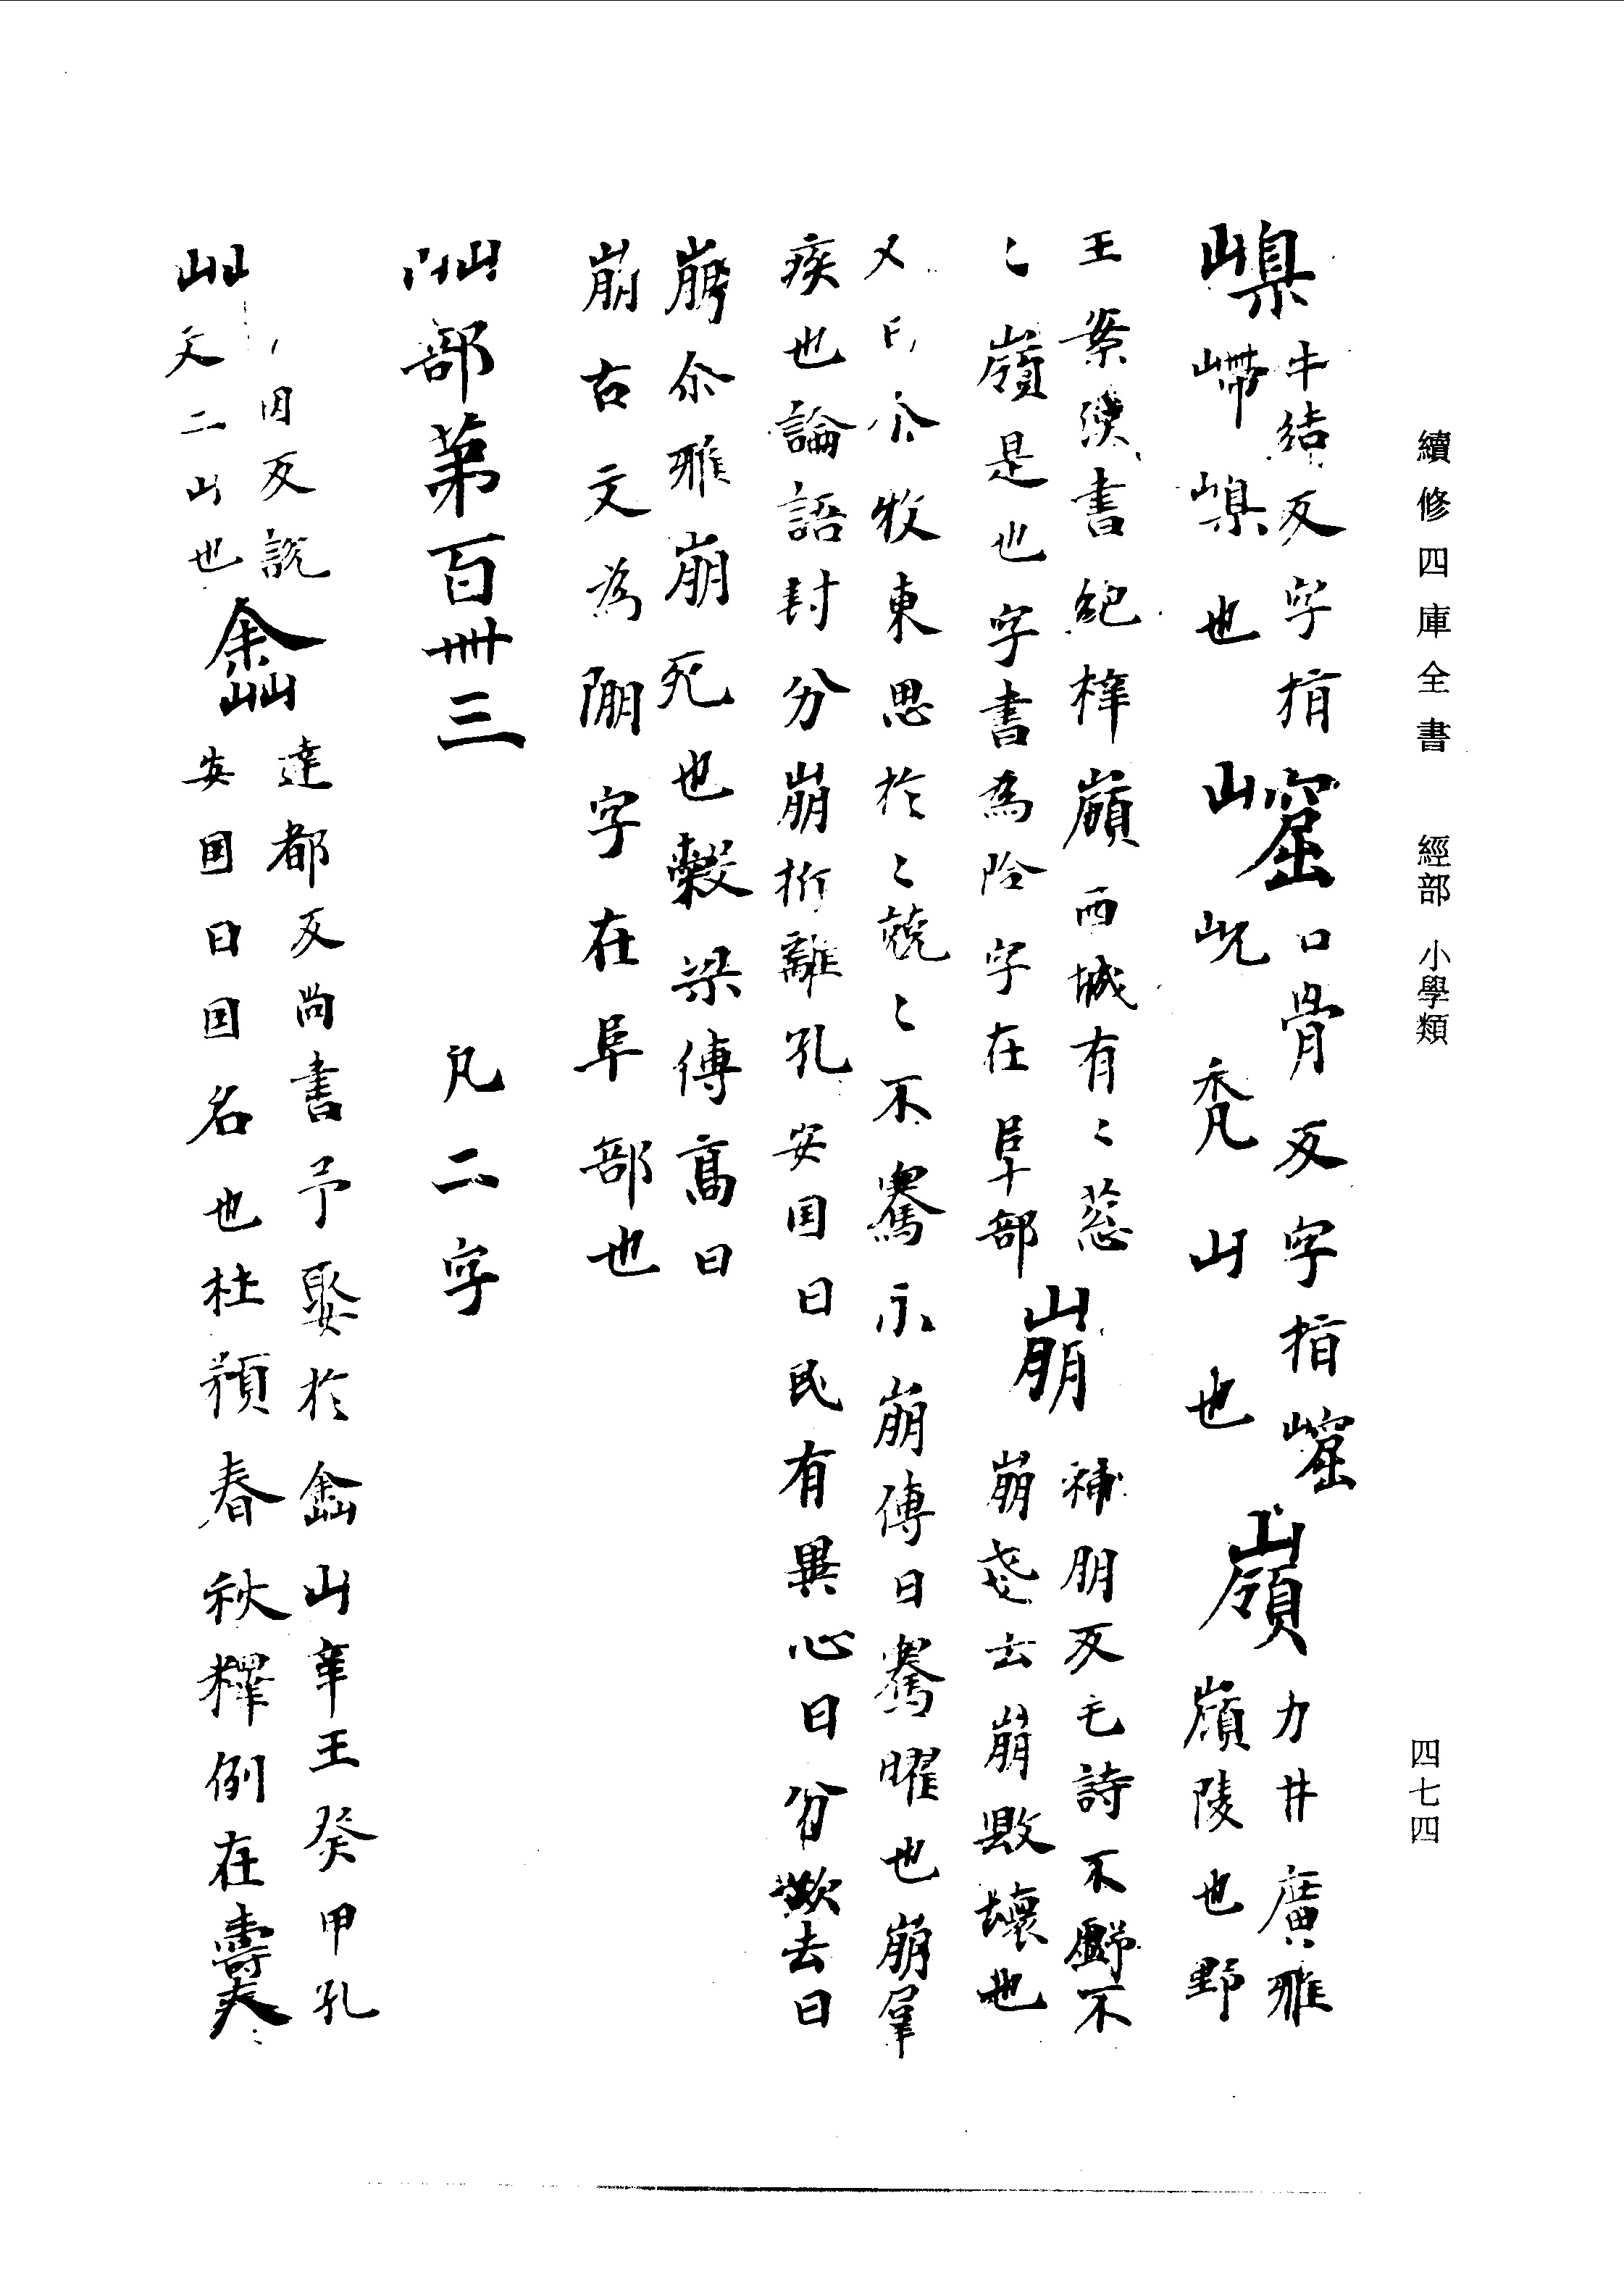 續修四庫全書 經部 小學類
四七四
嵲牛結反字指
嵽嵲也㟮口骨反字指㟮
屼禿山也嶺力井反廣雅
嶺陵也野
王案漢書絕梓嶺西城有〻葱
〻嶺是也字書為阾字在阜部崩補朋反毛詩不騫不
崩老去崩毀壞也
又曰尒牧來思於〻兢〻不騫不崩傳曰騫曜也崩羣
疾也論語封分崩析離孔安国曰民有異心曰分欲去曰
崩尒雅崩死也穀梁傳髙曰
崩古文為䧛字在阜部也
屾部第百卌三 凡二字
屾 因反說
文二山也嵞達都反尚書予娶於嵞山辛壬癸甲孔
安国曰国名也杜預春秋釋例在壽春〻